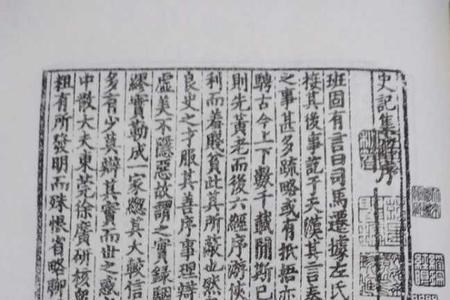 史記集解序
班固有言曰司馬遷據左氏
接其後事訖于天漢其言秦
之事甚多疏略或有抵捂亦
騁古今上下數千載閒斯已
則先黃老而後六經序游俠
利而羞賤貧此其所蔽也然
良史之才服其善序事理辯
虛美不隱惡故謂之實錄駰
繆實勒成一家總其大較信
多有少莫辯其實而世之惑
中散大夫東莞徐廣研核
粗有所發明而殊恨省略聊